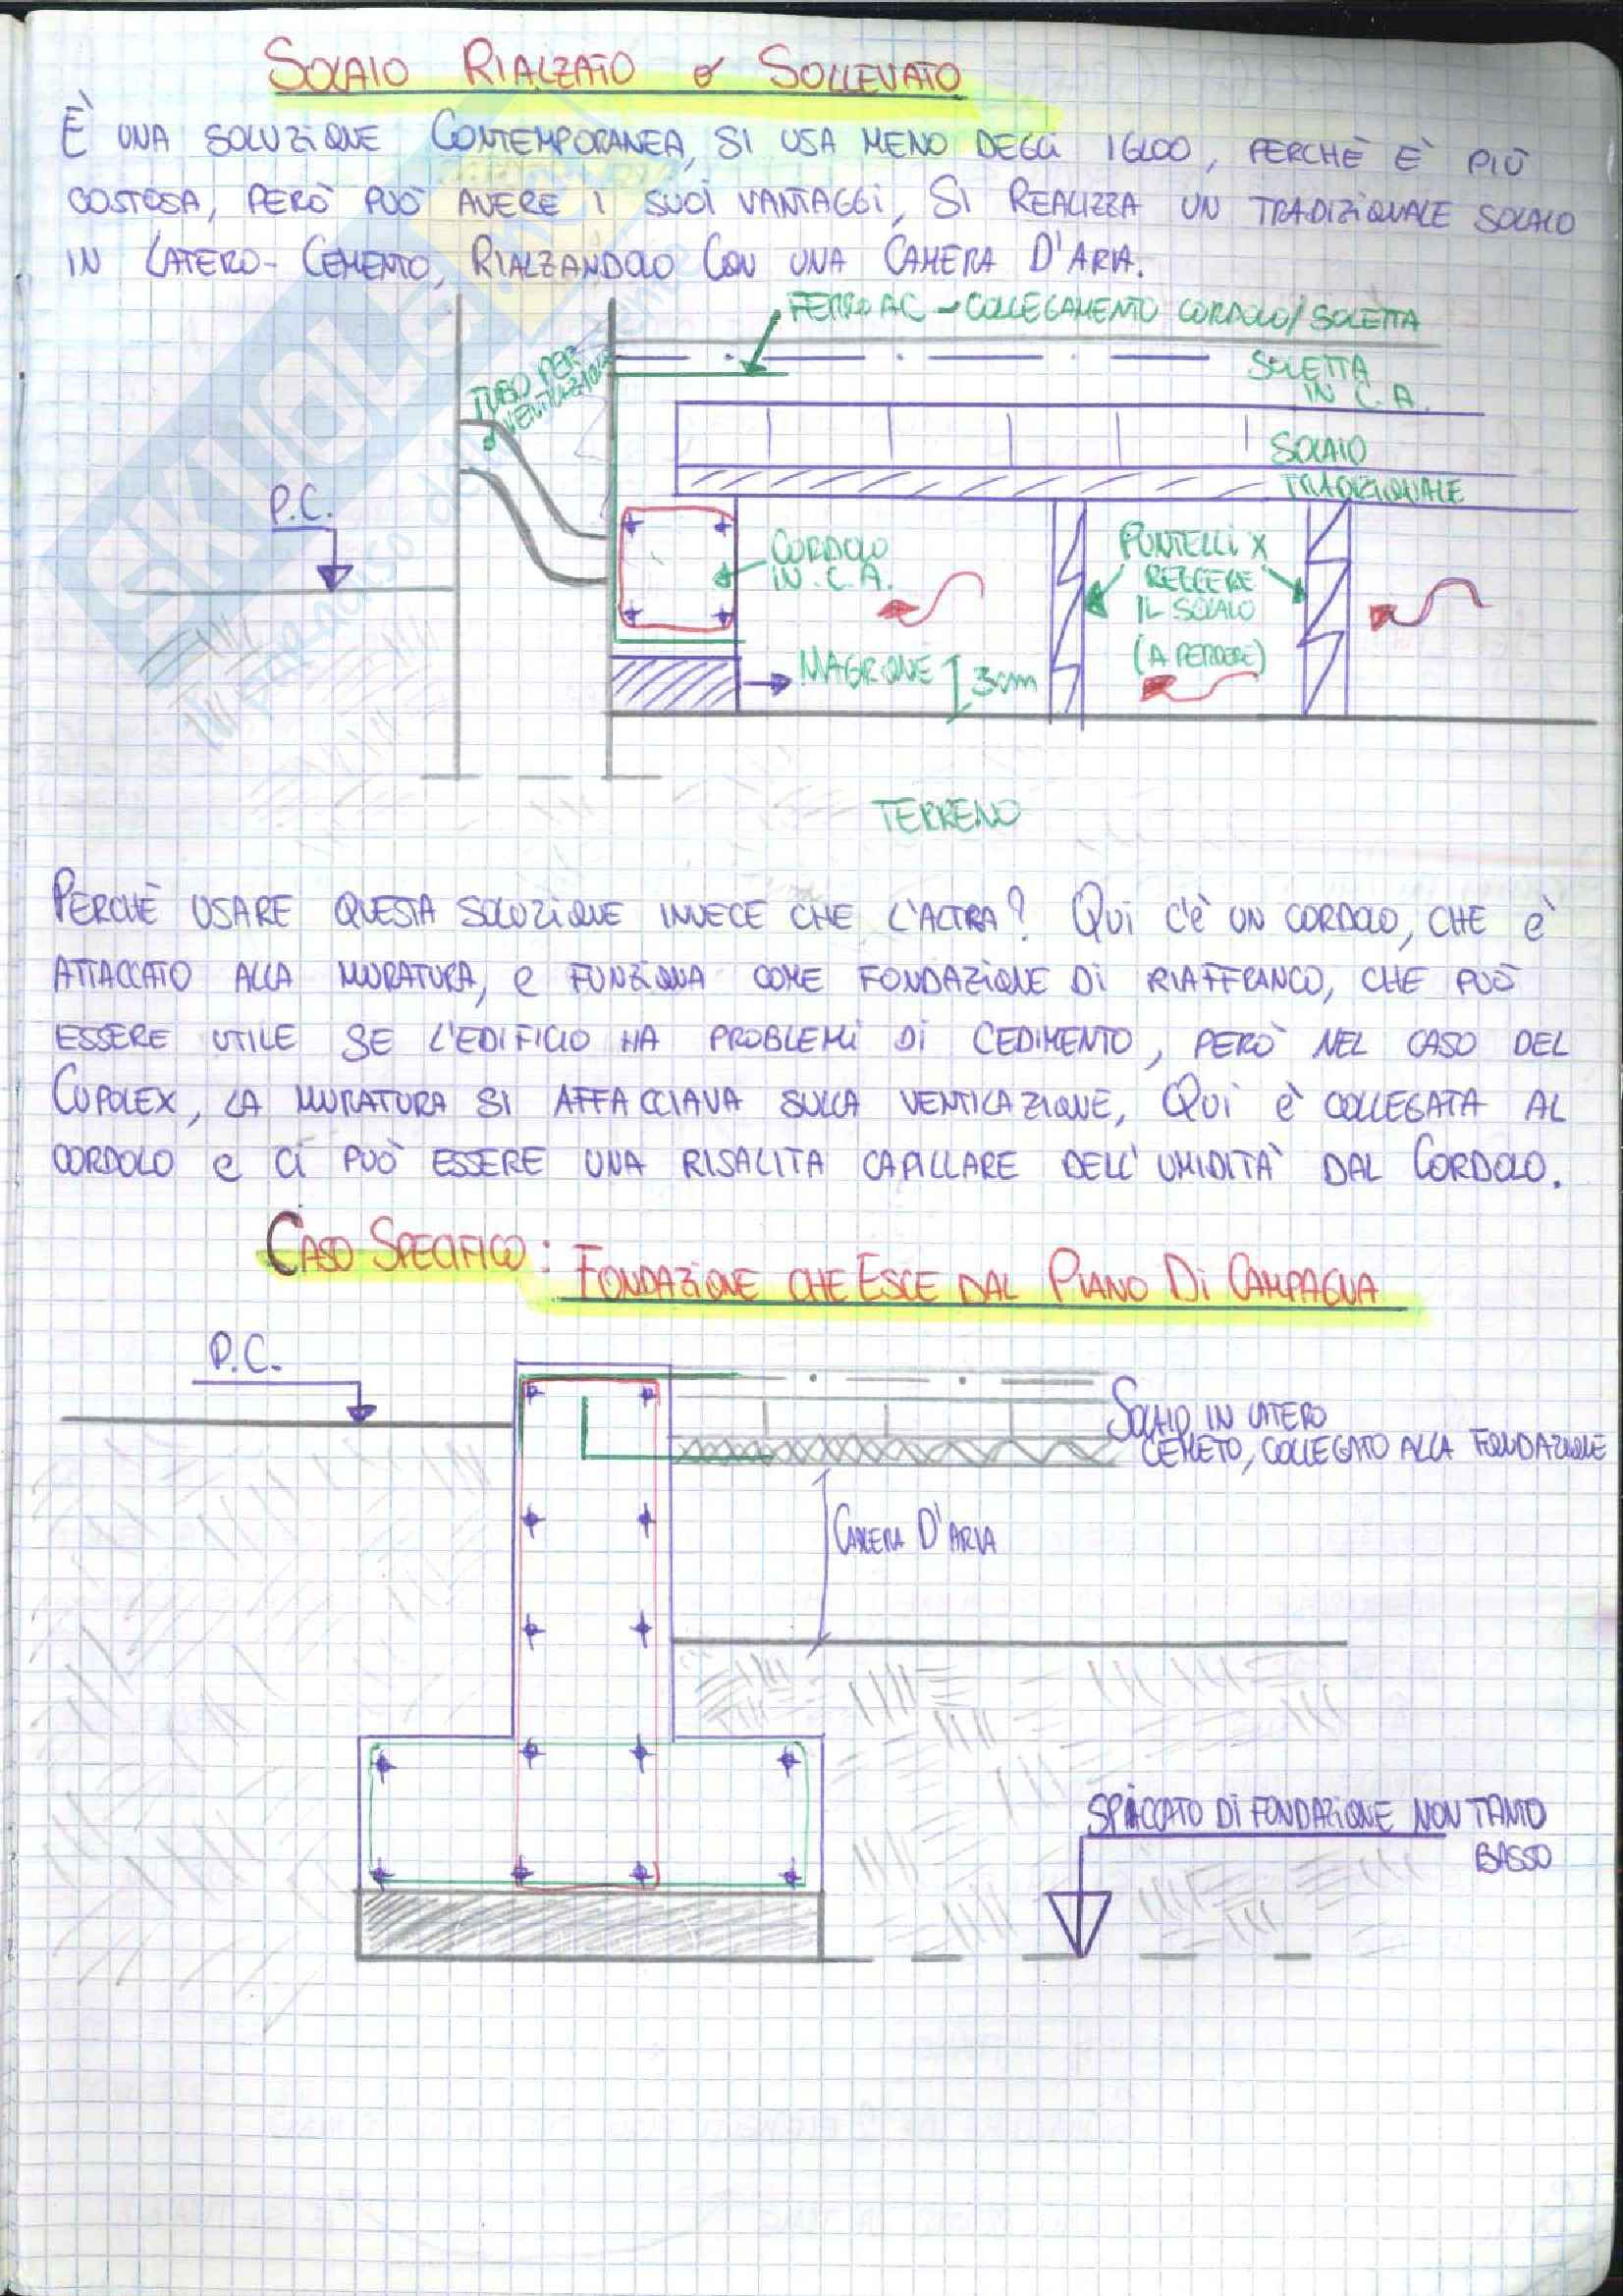 SOLAIO RIALZATO O SOLLEVATO
È UNA SOLUZIONE CONTEMPORANEA, SI USA MENO DEGLI IGLOO, PERCHÈ E' PIÙ
COSTOSA, PERÒ PUÒ AVERE I SUOI VANTAGGI, SI REALIZZA UN TRADIZIONALE SOLAIO
IN LATERO-CEMENTO, RIALZANDOLO CON UNA CAMERA D'ARIA.
FERRO AC - COLLEGAMENTO CORDOLO/SOLETTA
SOLETTA
IN C.A.
TUBO PER
VENTILAZIONE
SOLAIO
TRADIZIONALE
P.C.
CORDOLO
IN C.A.
PUNTELLI X
REGGERE
IL SOLAIO
(A PERDERE)
MAGRONE 3cm
TERRENO
PERCHÈ USARE QUESTA SOLUZIONE INVECE CHE L'ALTRA? QUI C'È UN CORDOLO, CHE È
ATTACCATO ALLA MURATURA, E FUNZIONA COME FONDAZIONE DI RIAFFRANCO, CHE PUÒ
ESSERE UTILE SE L'EDIFICIO HA PROBLEMI DI CEDIMENTO, PERÒ NEL CASO DEL
CUPOLEX, LA MURATURA SI AFFACCIAVA SULLA VENTILAZIONE, QUI È COLLEGATA AL
CORDOLO E CI PUÒ ESSERE UNA RISALITA CAPILLARE DELL'UMIDITÀ DAL CORDOLO.
CASO SPECIFICO: FONDAZIONE CHE ESCE DAL PIANO DI CAMPAGNA
P.C.
SOLAIO IN LATERO
CEMETO, COLLEGATO ALLA FONDAZIONE
CAMERA D'ARIA
SPICCATO DI FONDAZIONE NON TANTO
BASSO
SKUOLA